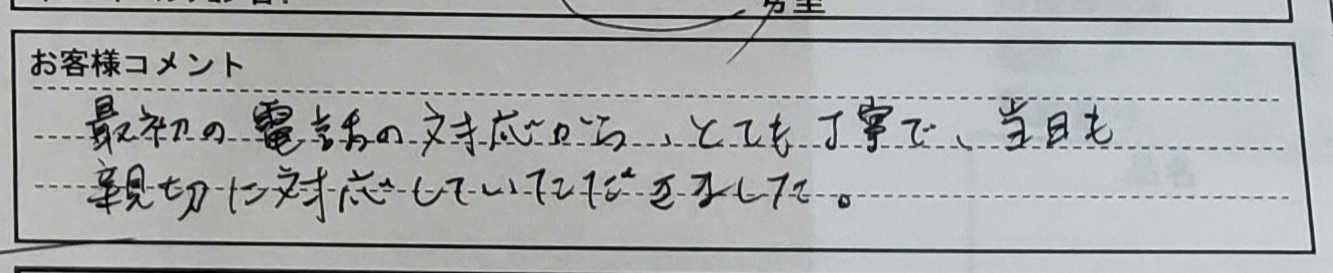 お客様コメント
最初の電話の対応から、とても丁寧で、当日も
親切に対応していただきました。